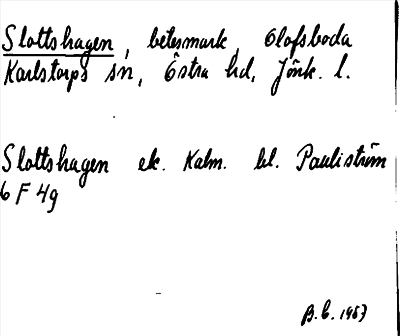 Slottshagen, betesmark, Olofsboda
Karlstorps sn, Östra hd, Jönk. l.
Slottshagen ek. Kalm. bl. Pauliström
6 F 4g
B.E. 1957